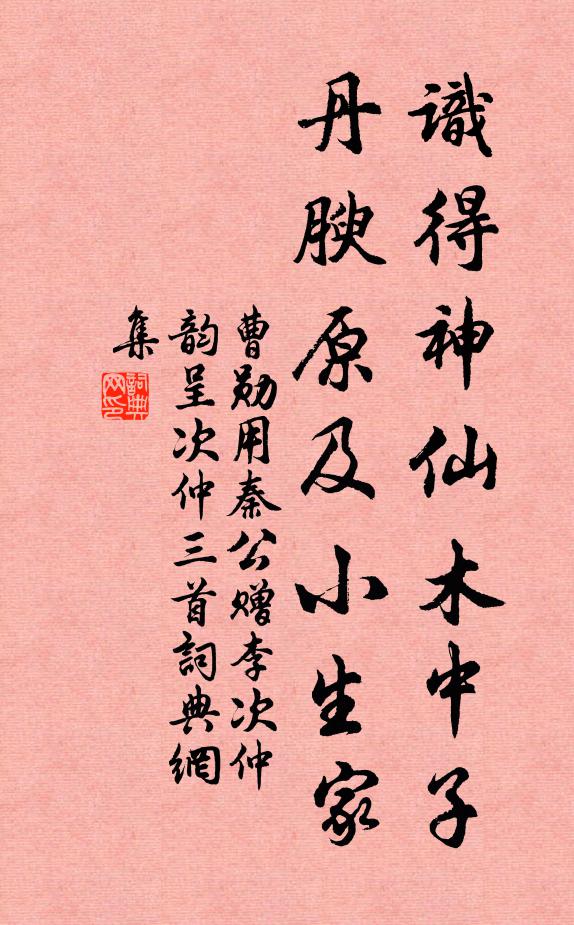 識得神仙木中子
丹腴原及小生家
曹勛用秦公贈李次仲
韵呈次仲三首詞典網
集
詞典
网印